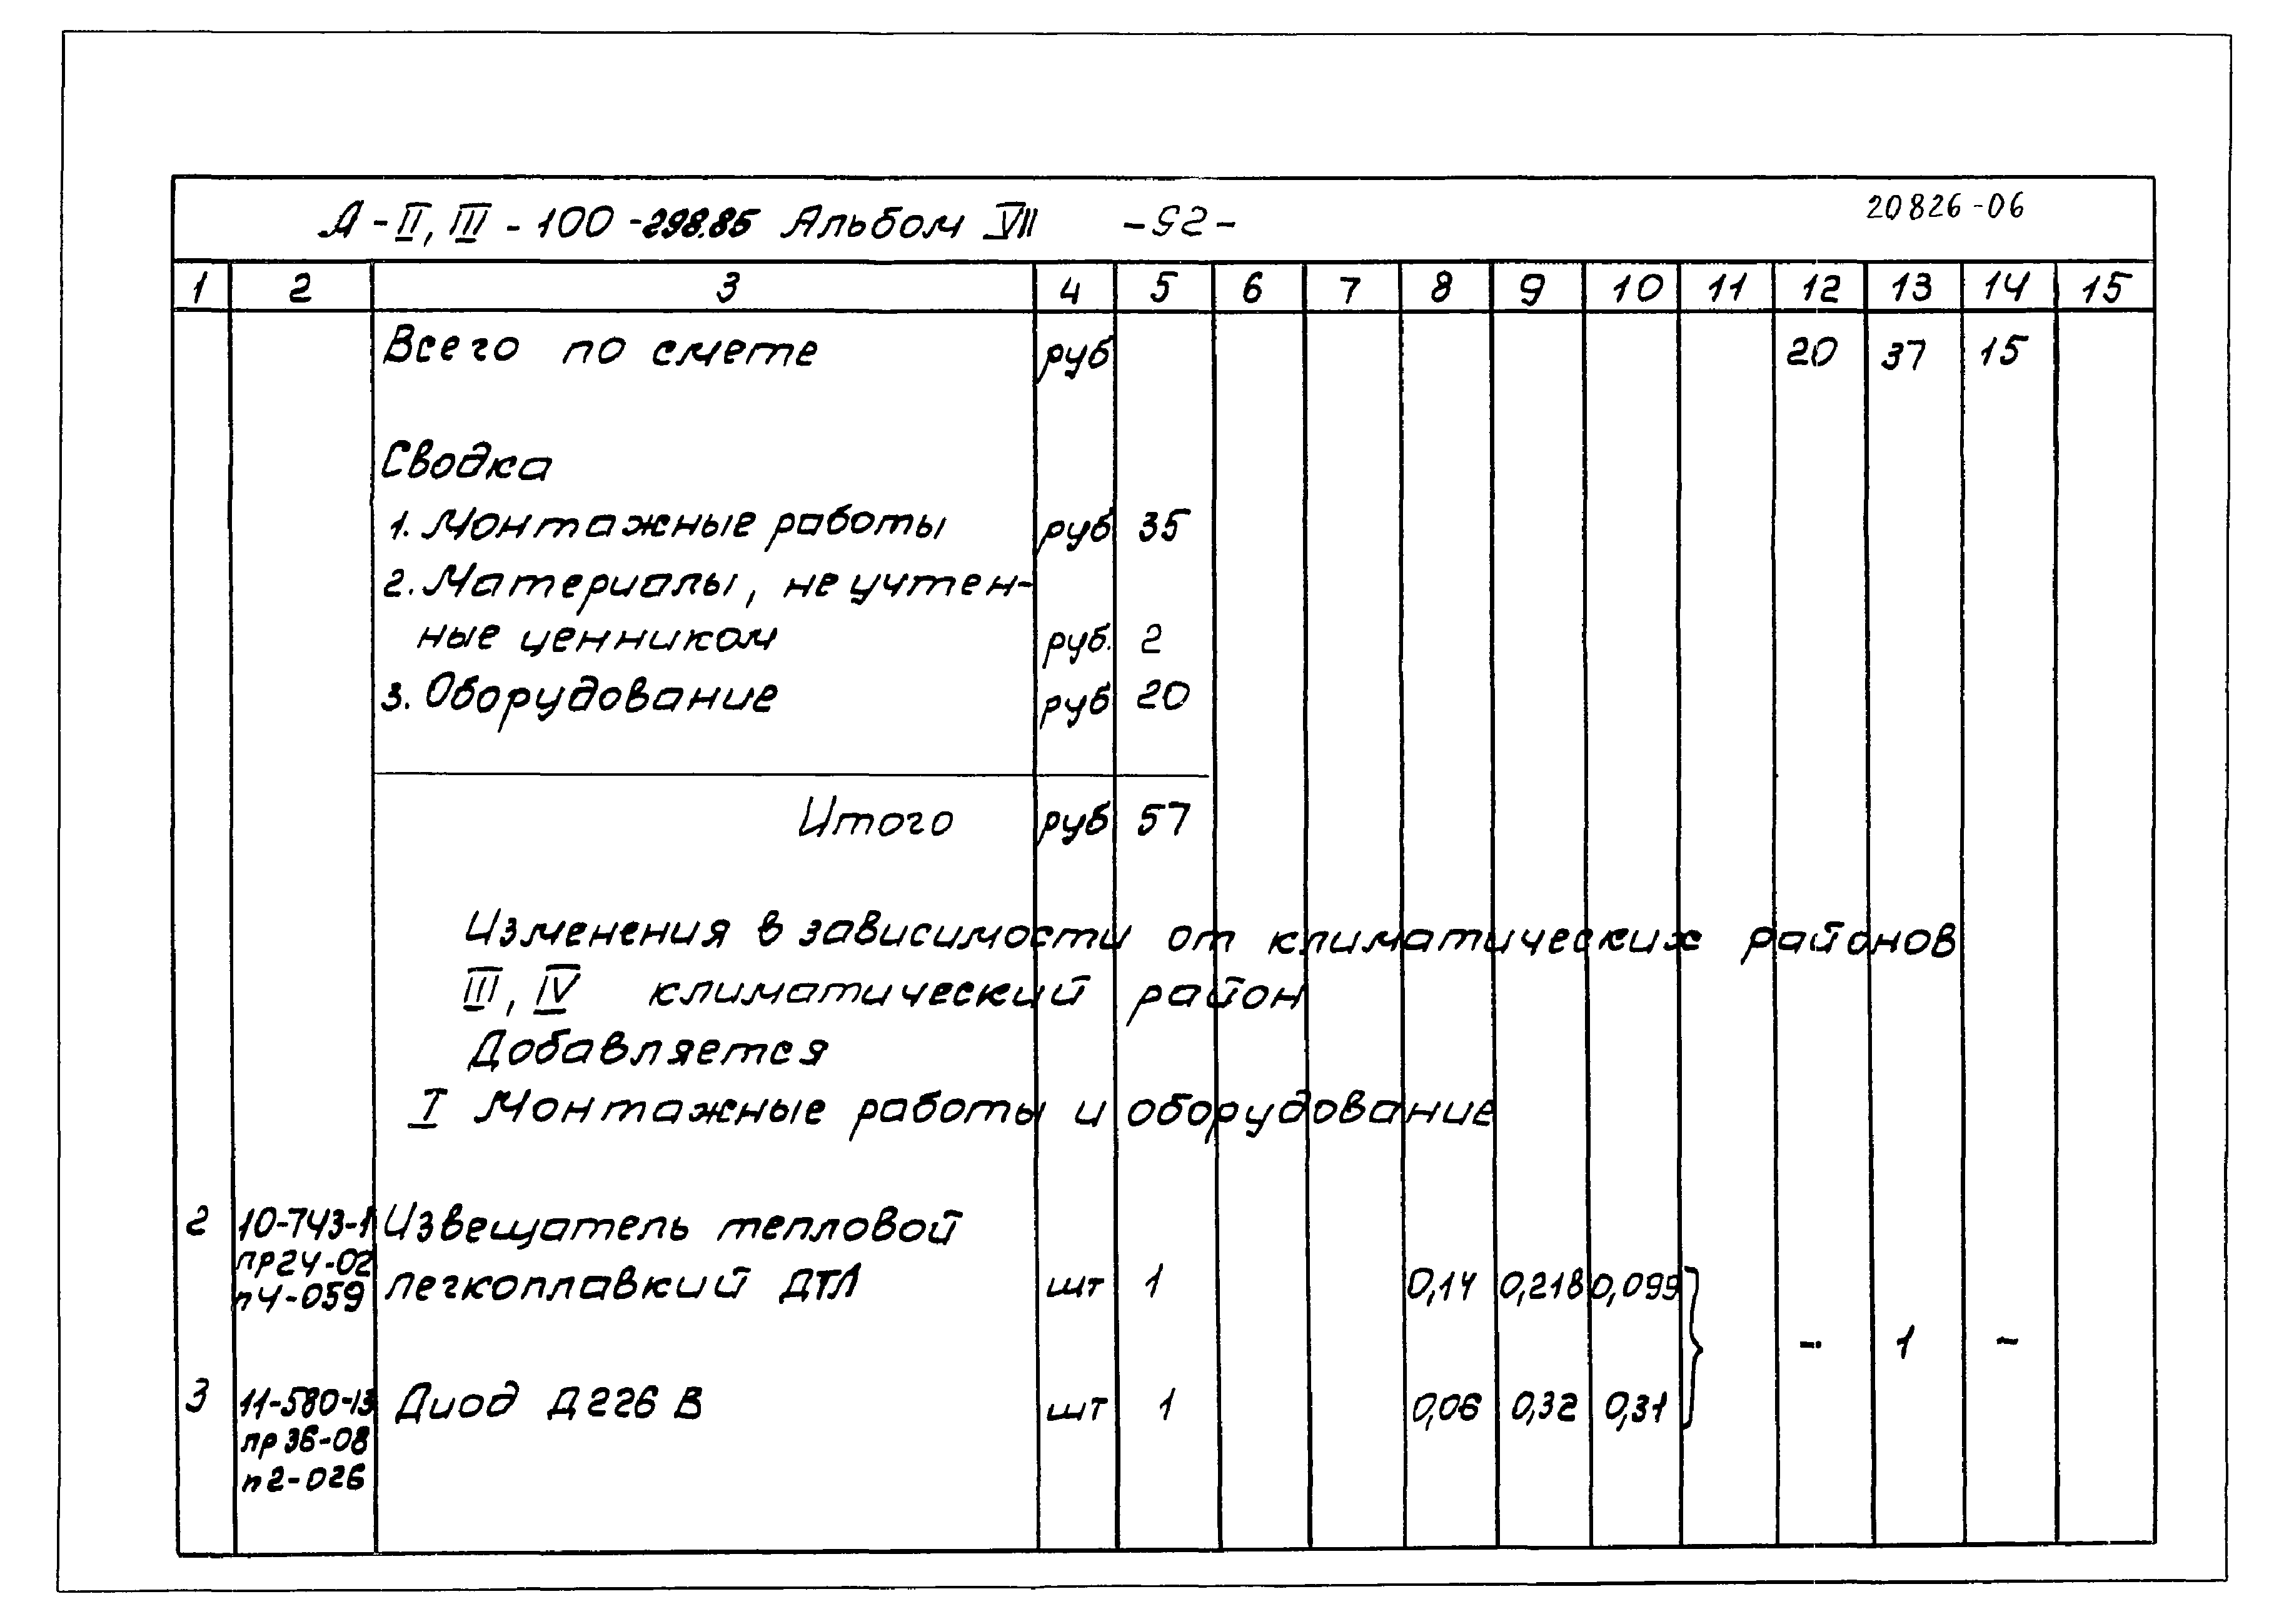 А-II, III-100-298.85 Альбом VII -52- 20826-06
1 2 3 4 5 6 7 8 9 10 11 12 13 14 15
Всего по смете руб 20 37 15
Сводка
1. Монтажные работы руб 35
2. Материалы, не учтен-
ные ценником руб. 2
3. Оборудование руб 20
Итого руб 57
Изменения в зависимости от климатических районов
III, IV климатический район
Добавляется
I Монтажные работы и оборудование
2 10-743-1 Извещатель тепловой
пр24-02
п4-059 легкоплавкий ДТЛ шт 1 0,14 0,218 0,099
- 1 -
3 11-580-13 Диод Д226В шт 1 0,06 0,32 0,31
пр36-08
п2-026